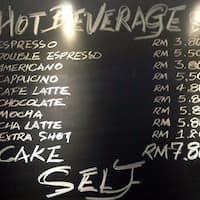 HOT BEVERAGE
ESPRESSO RM 3.80
DOUBLE ESPRESSO RM 5.50
AMERICANO RM 3.80
CAPPUCINO RM 5.50
CAFE LATTE RM 4.80
CHOCOLATE RM 5.
MOCHA RM 5.
CHA LATTE RM 5.
EXTRA SHOT RM 1.80
CAKE RM 7.80
SELF